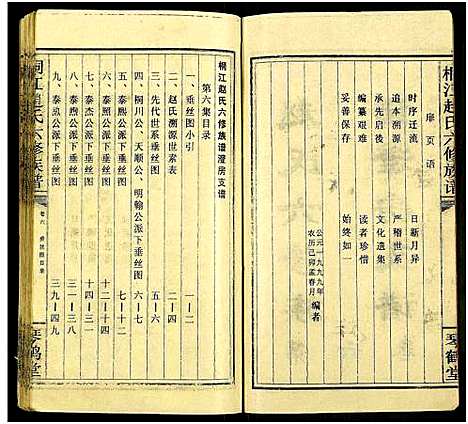 桐江赵氏六修族谱
琴鹤堂
扉页语
时序迁流 日新月异
追本溯源 严稽世系
承先启後 文化遗集
编纂艰难 读者珍惜
妥善保存 始终如一
公元一九九九年
农历己卯孟春月 编者
桐江赵氏六修族谱澄房支谱
第六集目录
一、垂丝图小引 一—二
二、赵氏溯源世索表 三—四
三、先代世系垂丝图 五—六
四、桐川公、天顺公、明翰公派下垂丝图 六—七
五、泰然公派下垂丝图 七—十二
六、泰杰公派下垂丝图 十—十一
七、泰点公派下垂丝图 十四—三一
八、泰煎公派下垂丝图 三二—三九
九、泰照公派下垂丝图 三九—四九
桐江赵氏六修族谱
卷六
琴鹤堂